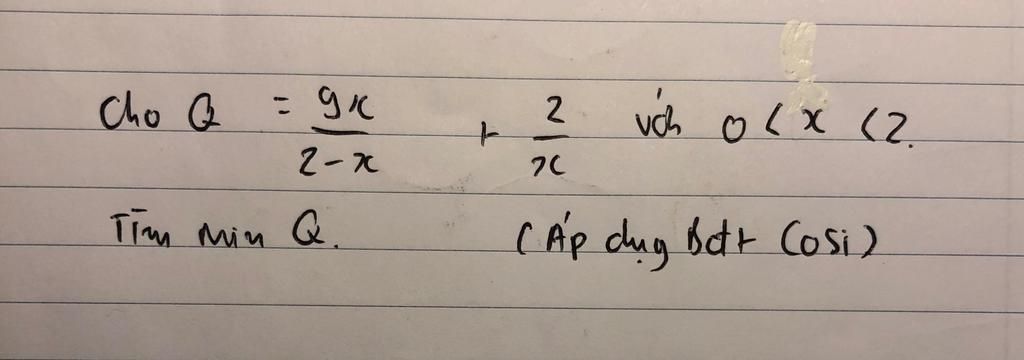 Cho Q = 9x/(2-x) + 2/x với 0 < x < 2.
Tìm Min Q. (Áp dụng Bđt Cosi)